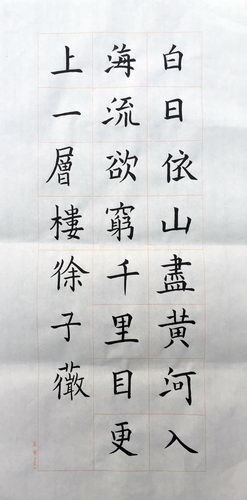 白日依山盡黄河入
海流欲窮千里目更
上一層樓徐子薇